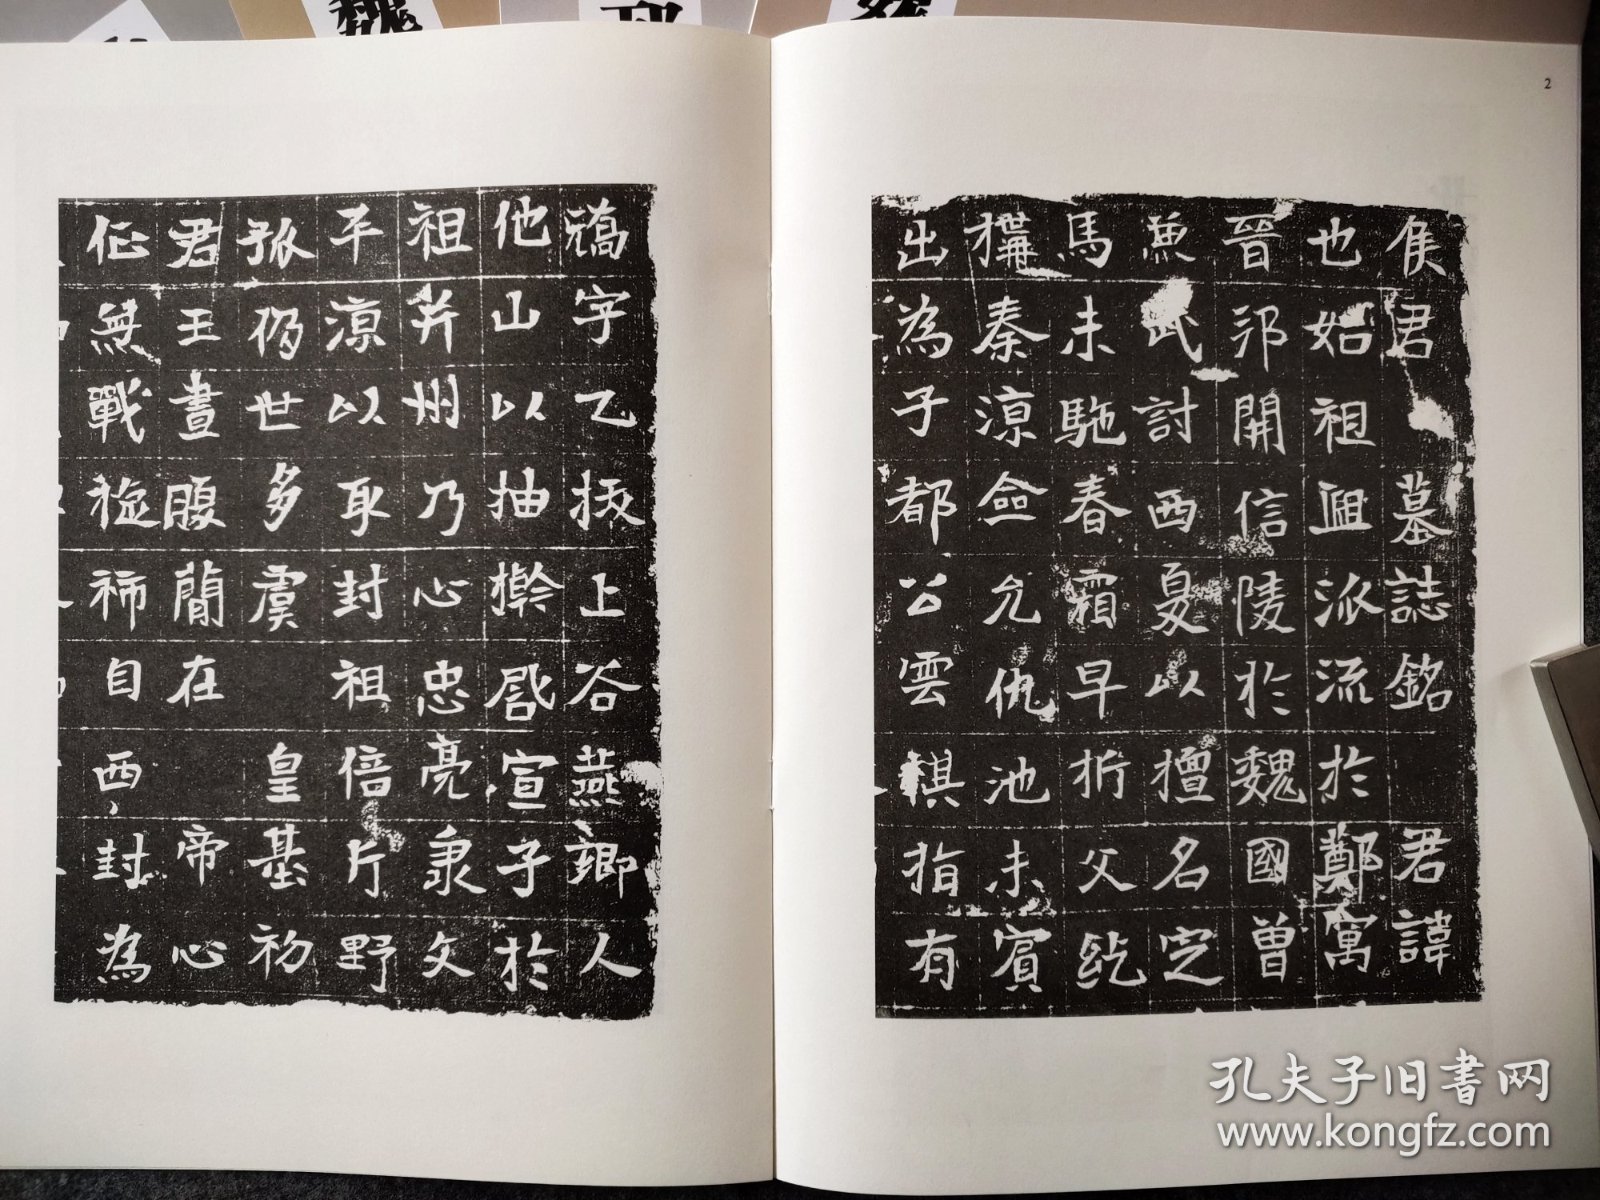 2
侯君墓誌銘君諱
也始祖盥派流於鄭寓
晉邦開信陵於魏國曽
魚武討西夏以擅名定
馬未馳春霜早折父紇
搆秦涼僉允仇池未賓
出為子都公雲騏指有
字乙拔上谷燕鄉人
他山以抽擀啓宣子於
祖并州乃心忠亮秉文
平涼以取封祖倍片野
孤仍世多虞皇基初
君王晝腹簡在帝心
征無戰旋旆自西封為
魏
孔夫子旧书网
www.kongfz.com